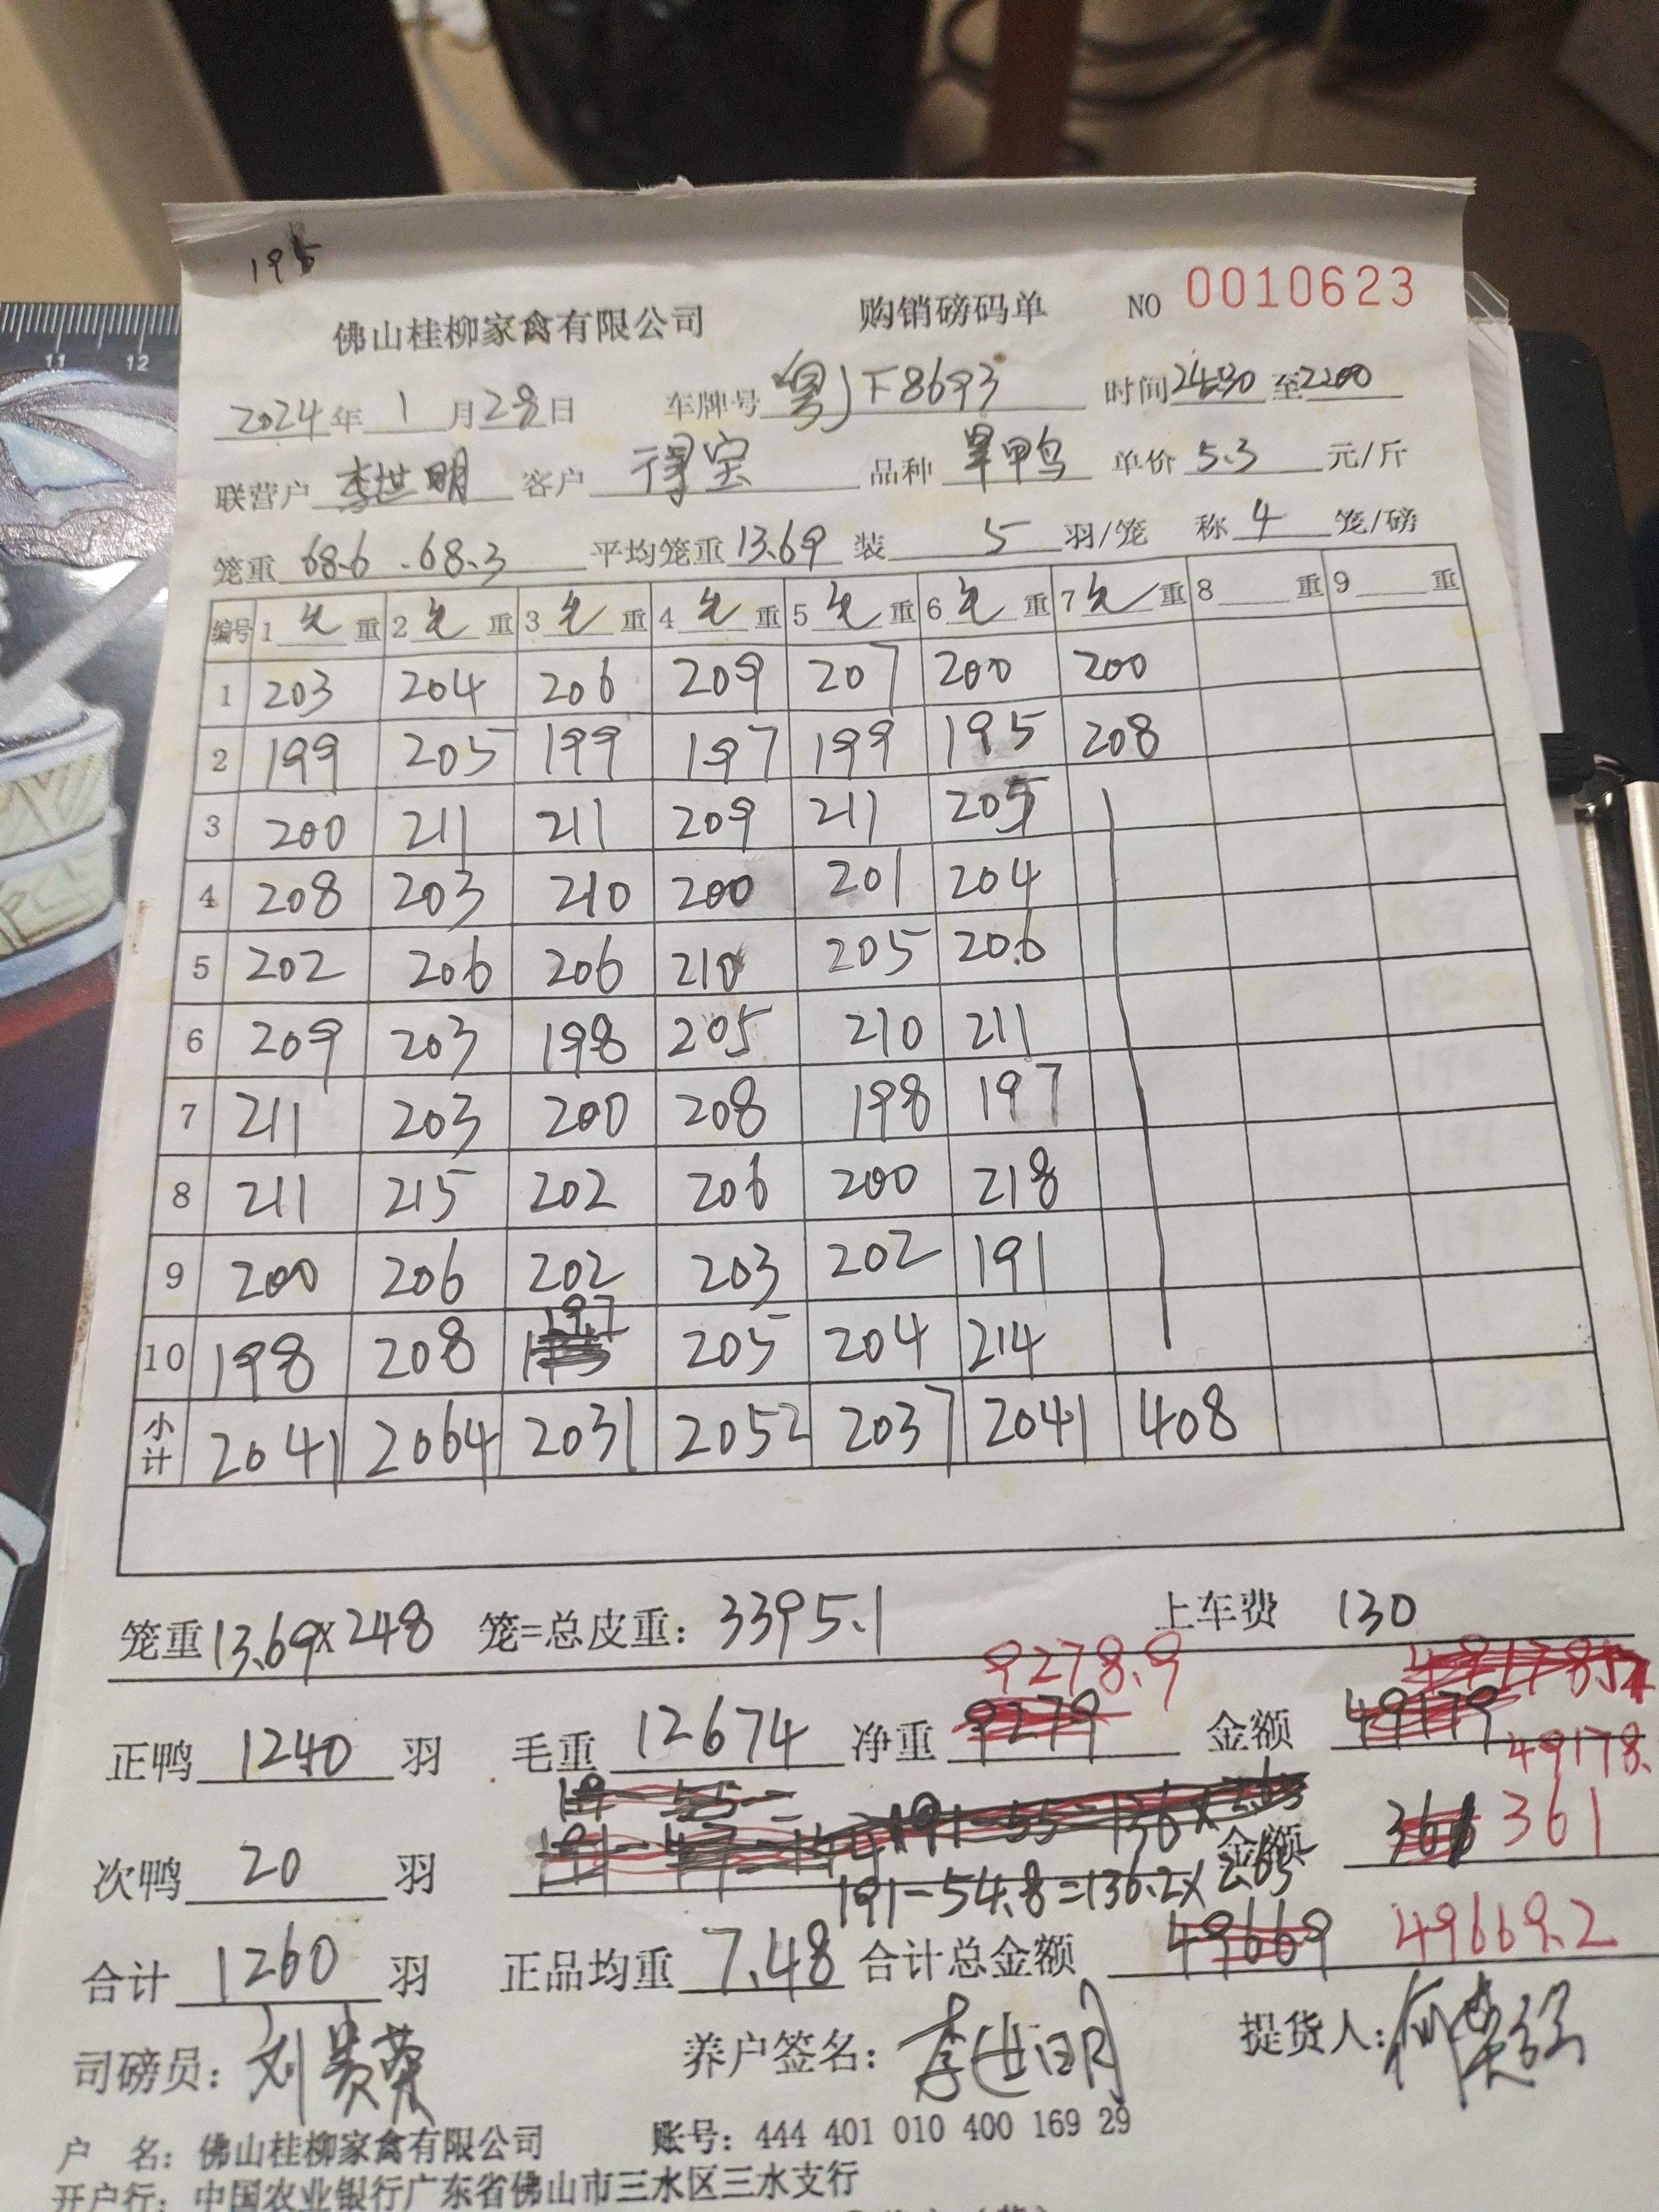 195
佛山桂柳家禽有限公司 购销磅码单 NO 0010623
2024年1月28日 车牌号 粤JF8693 时间 至2200
联营户 李世明 客户 得宝 品种 旱甲鸟 单价 5.3 元/斤
笼重 68.6 . 68.3 平均笼重 13.69 装 5 羽/笼 称 4 笼/磅
编号 1 毛 重 2 毛 重 3 毛 重 4 毛 重 5 毛 重 6 毛 重 7 毛 重 8 重 9 重
1 203 204 206 209 207 200 200
2 199 205 199 197 199 195 208
3 200 211 211 209 211 205
4 208 203 210 200 201 204
5 202 206 206 210 205 206
6 209 203 198 205 210 211
7 211 203 200 208 198 197
8 211 215 202 206 200 218
9 200 206 202 203 202 191
10 198 208 197 205 204 214
小计 2041 2064 2031 2052 2037 2041 408
笼重 13.69×248 笼=总皮重: 3395.1 上车费 130
9278.9
正鸭 1240 羽 毛重 12674 净重 9279 金额 49179
49178.
次鸭 20 羽 金额 361
191-54.8=136.2×2.65
合计 1260 羽 正品均重 7.48 合计总金额 49669 49669.2
司磅员: 刘贵荣 养户签名: 李世明 提货人:
户 名: 佛山桂柳家禽有限公司 账号: 444 401 010 400 169 29
开户行: 中国农业银行广东省佛山市三水区三水支行